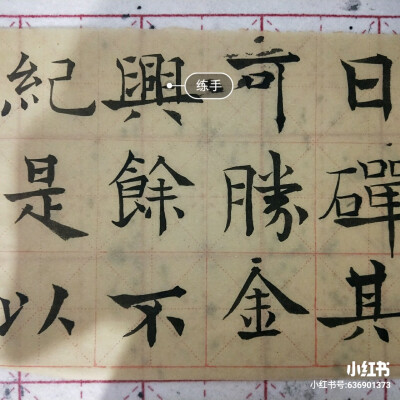 日磾其
可勝金
興餘不
紀是以
练手
小红书
小红书号:636901373